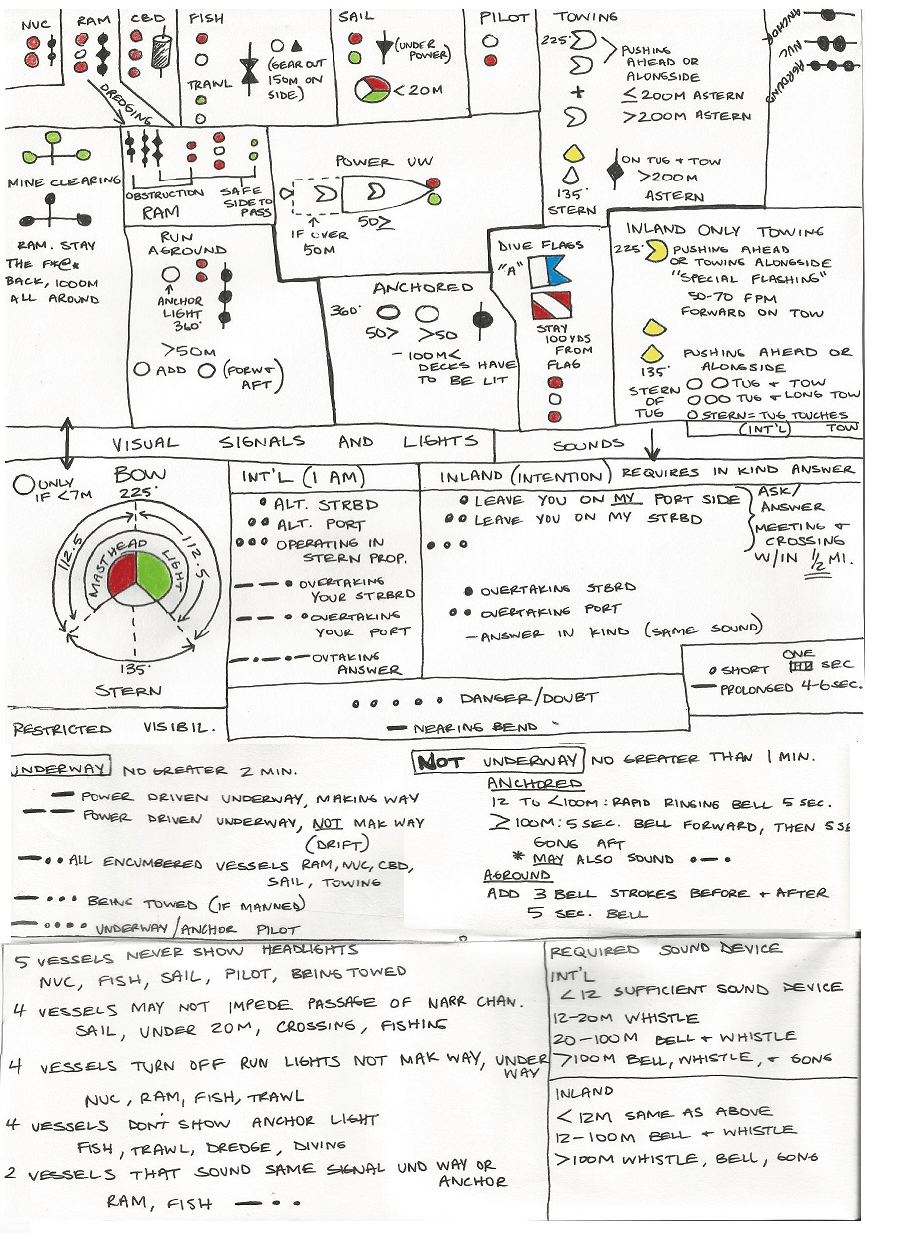 NUC
RAM
CBD
FISH
TRAWL
(GEAR OUT
150M ON
SIDE)
SAIL
(UNDER
POWER)
<20M
PILOT
TOWING
225°
PUSHING
AHEAD OR
ALONGSIDE
≤200M ASTERN
>200M ASTERN
ON TUG + TOW
>200M
ASTERN
135°
STERN
ANCHOR
NUC
AGROUND
DREDGING
MINE CLEARING
RAM. STAY
THE F*@*
BACK, 1000M
ALL AROUND
OBSTRUCTION
SAFE
SIDE TO
PASS
RAM
POWER UW
IF OVER
50M
50≥
RUN
AGROUND
ANCHOR
LIGHT
360°
>50M
ADD
(FORW+
AFT)
ANCHORED
360°
50> >50
- 100M<
DECKS HAVE
TO BE LIT
DIVE FLAGS
"A"
STAY
100YDS
FROM
FLAG
INLAND ONLY TOWING
225°
PUSHING AHEAD
OR TOWING ALONGSIDE
"SPECIAL FLASHING"
50-70 FPM
FORWARD ON TOW
135°
PUSHING AHEAD OR
ALONGSIDE
STERN
OF
TUG
TUG + TOW
TUG + LONG TOW
STERN = TUG TOUCHES
TOW
(INT'L)
VISUAL SIGNALS AND LIGHTS
SOUNDS
ONLY
IF <7M
BOW
225°
112.5
112.5
MASTHEAD LIGHT
135°
STERN
INT'L (I AM)
ALT. STRBD
ALT. PORT
OPERATING IN
STERN PROP.
OVERTAKING
YOUR STRBRD
OVERTAKING
YOUR PORT
OVTAKING
ANSWER
INLAND (INTENTION) REQUIRES IN KIND ANSWER
LEAVE YOU ON MY PORT SIDE
LEAVE YOU ON MY STRBD
ASK/
ANSWER
MEETING +
CROSSING
W/IN 1/2 MI.
OVERTAKING STBRD
OVERTAKING PORT
- ANSWER IN KIND (SAME SOUND)
DANGER/DOUBT
NEARING BEND
SHORT ONE SEC
PROLONGED 4-6 SEC.
RESTRICTED VISIBIL.
UNDERWAY NO GREATER 2 MIN.
POWER DRIVEN UNDERWAY, MAKING WAY
POWER DRIVEN UNDERWAY, NOT MAK WAY
(DRIFT)
ALL ENCUMBERED VESSELS RAM, NUC, CBD,
SAIL, TOWING
BEING TOWED (IF MANNED)
UNDERWAY/ANCHOR PILOT
NOT UNDERWAY NO GREATER THAN 1 MIN.
ANCHORED
12 TO <100M: RAPID RINGING BELL 5 SEC.
≥100M: 5 SEC. BELL FORWARD, THEN 5 SE
GONG AFT
* MAY ALSO SOUND
AGROUND
ADD 3 BELL STROKES BEFORE + AFTER
5 SEC. BELL
5 VESSELS NEVER SHOW HEADLIGHTS
NUC, FISH, SAIL, PILOT, BEING TOWED
4 VESSELS MAY NOT IMPEDE PASSAGE OF NARR CHAN.
SAIL, UNDER 20M, CROSSING, FISHING
4 VESSELS TURN OFF RUN LIGHTS NOT MAK WAY, UNDER
WAY
NUC, RAM, FISH, TRAWL
4 VESSELS DON'T SHOW ANCHOR LIGHT
FISH, TRAWL, DREDGE, DIVING
2 VESSELS THAT SOUND SAME SIGNAL UND WAY OR
ANCHOR
RAM, FISH
REQUIRED SOUND DEVICE
INT'L
<12 SUFFICIENT SOUND DEVICE
12-20M WHISTLE
20-100M BELL + WHISTLE
>100M BELL, WHISTLE, + GONG
INLAND
<12M SAME AS ABOVE
12-100M BELL + WHISTLE
>100M WHISTLE, BELL, GONG